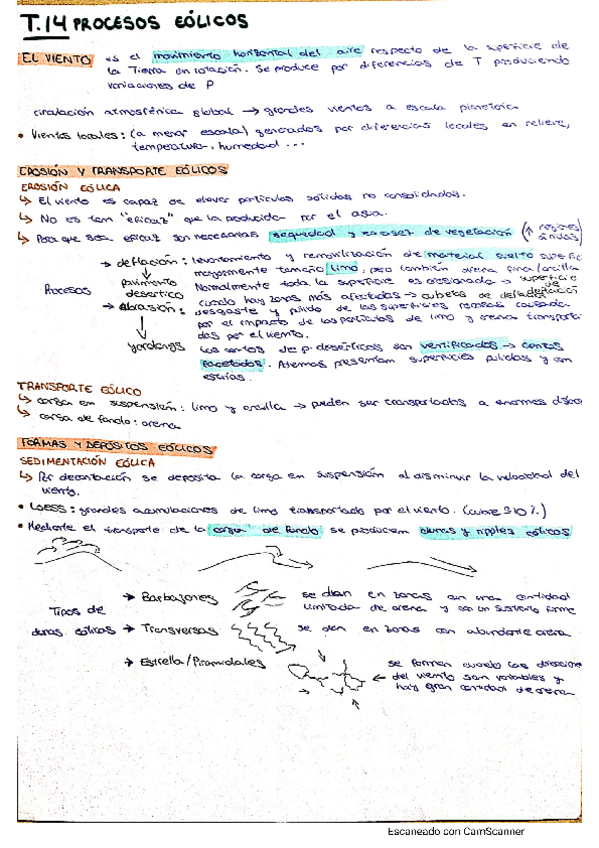 T.14 PROCESOS EÓLICOS
EL VIENTO es el movimiento horizontal del aire respecto de la superficie de
la Tierra en rotación. Se produce por diferencias de T produciendo
variaciones de P
circulación atmosférica global → grandes vientos a escala planetaria
• Vientos locales: (a menor escala) generados por diferencias locales en relieve,
temperatura, humedad ...
EROSIÓN Y TRANSPORTE EÓLICOS
EROSIÓN EÓLICA
↳ El viento es capaz de elevar partículas sólidas no consolidadas.
↳ No es tan "eficaz" que la producida por el agua.
↳ Para que sea eficaz son necesarias sequedad y escasez de vegetación (↑ regiones áridas)
Procesos
→ deflación: levantamiento y removilización de material suelto superfic
mayormente tamaño limo, pero también arena fina/arcilla
Normalmente toda la superficie es erosionada → superficie de deflación
cuando hay zonas más afectadas → cubetas de deflación
pavimento desértico
→ Abrasión: desgaste y pulido de las superficies rocosas causada
por el impacto de las partículas de limo y arena transporta-
das por el viento.
yardangs
Los cantos de p. desérticos son ventifactados → cantos
facetados. Además presentan superficies pulidas y con
estrías.
TRANSPORTE EÓLICO
↳ carga en suspensión: limo y arcilla → pueden ser transportados a enormes distanc
↳ carga de fondo: arena
FORMAS Y DEPÓSITOS EÓLICOS
SEDIMENTACIÓN EÓLICA
↳ Por decantación se deposita la carga en suspensión al disminuir la velocidad del
viento.
• LOESS: grandes acumulaciones de limo transportado por el viento. (cubre 10%)
• Mediante el transporte de la carga de fondo se producen dunas y ripples eólicos
Tipos de
dunas eólicas
→ Barbajones se dan en zonas con una cantidad
limitada de arena y con un sustrato firme
→ Transversas se dan en zonas con abundante arena
→ Estrella/Piramidales ← se forman cuando las direccione
del viento son variables y
hay gran cantidad de arena
Escaneado con CamScanner